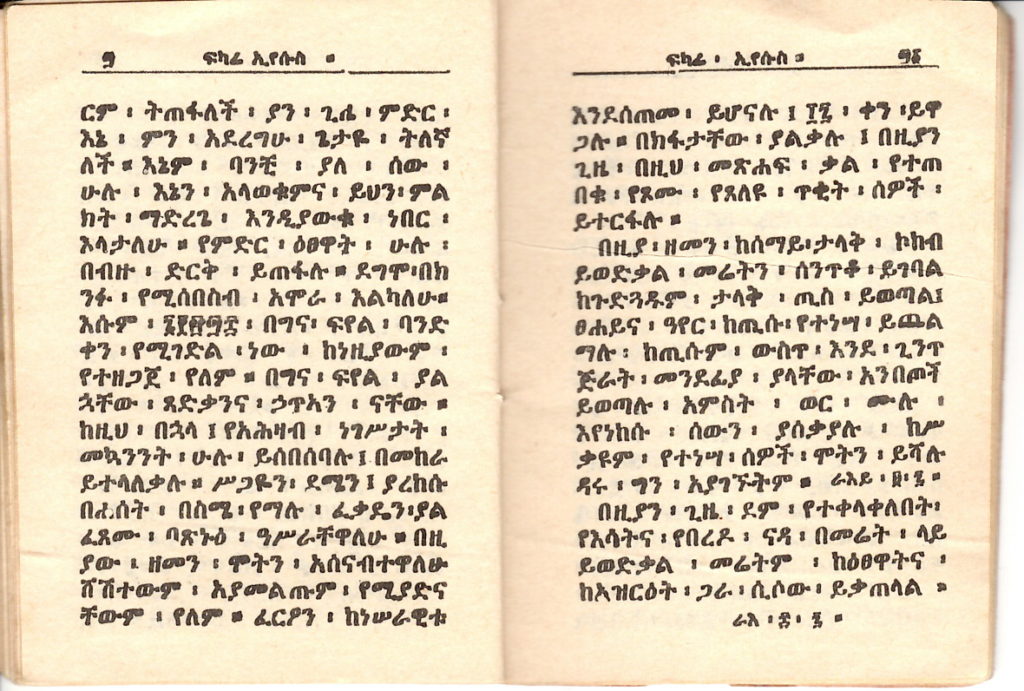 ፶ ፍካሬ ኢየሱስ ።
ርም ፡ ትጠፋለች ፡ ያን ፡ ጊሔ ፡ ምድር ፡
እኔ ፡ ምን ፡ አደረግሁ ፡ ጌታዬ ፡ ትለኛ
ለች ። እኔም ፡ ባንቺ ፡ ያለ ፡ ሰው ፡
ሁሉ ፡ እኔን ፡ አላወቁምና ፡ ይህን ፡ ምል
ክት ፡ ማድረጌ ፡ እንዲያውቁ ፡ ነበር ፡
እላታለሁ ። የምድር ፡ ዕፀዋት ፡ ሁሉ ፡
በብዙ ፡ ድርቅ ፡ ይጠፋሉ ። ደግሞ ፡ በክ
ንፉ ፡ የሚሰበስብ ፡ አሞራ ፡ እልካለሁ ።
እሱም ፡ በግና ፡ ፍየል ፡ ባንድ
ቀን ፡ የሚገድል ፡ ነው ፡ ከነዚያውም ፡
የተዘጋጀ ፡ የለም ። በግና ፡ ፍየል ፡ ያል
ኋቸው ፡ ጻድቃንና ፡ ኃጥአን ፡ ናቸው ።
ከዚህ ፡ በኋላ ፤ የአሕዛብ ፡ ነገሥታት ፡
መኳንንት ፡ ሁሉ ፡ ይሰበሰባሉ ፤ በመከራ
ይተላለቃሉ ። ሥጋዬን ፡ ደሜን ፤ ያረከሱ
በሐሰት ፡ በስሜ ፡ የማሉ ፡ ፈቃዴን ፡ ያል
ፈጸሙ ፡ ባጽኑዕ ፡ ዓሥራቸዋለሁ ። በዚ
ያው ፡ ዘመን ፡ ሞትን ፡ አሰናብተዋለሁ
ሸሽተውም ፡ አያመልጡም ፡ የሚያድና
ቸውም ፡ የለም ። ፈርዖን ፡ ከነሠራዊቱ
ፍካሬ ፡ ኢየሱስ ።
እንደሰጠመ ፡ ይሆናሉ ፤ ፲፯ ፡ ቀን ፡ ይዋ
ጋሉ ። በክፋታቸው ፡ ያልቃሉ ፤ በዚያን
ጊዜ ፡ በዚህ ፡ መጽሐፍ ፡ ቃል ፡ የተጠ
በቁ ፡ የጾሙ ፡ የጸለዩ ፡ ጥቂት ፡ ሰዎች ፡
ይተርፋሉ ።
በዚያ ፡ ዘመን ፡ ከሰማይ ፡ ታላቅ ፡ ኮከብ
ይወድቃል ፡ መሬትን ፡ ሰንጥቆ ፡ ይገባል
ከጉድጓዱም ፡ ታላቅ ፡ ጢስ ፡ ይወጣል ፤
ፀሐይና ፡ ዓየር ፡ ከጢሱ ፡ የተነሣ ፡ ይጨል
ማሉ ፡ ከጢሱም ፡ ውስጥ ፡ እንደ ፡ ጊንጥ
ጅራት ፡ መንደፊያ ፡ ያላቸው ፡ አንበጦች
ይወጣሉ ፡ አምስት ፡ ወር ፡ ሙሉ ፡
እየነከሱ ፡ ሰውን ፡ ያሰቃያሉ ፡ ከሥ
ቃዩም ፡ የተነሣ ፡ ሰዎች ፡ ሞትን ፡ ይሻሉ
ዳሩ ፡ ግን ፡ አያገኙትም ። ራእይ ፡
በዚያን ፡ ጊዜ ፡ ደም ፡ የተቀላቀለበት ፡
የእሳትና ፡ የበረዶ ፡ ናዳ ፡ በመሬት ፡ ላይ
ይወድቃል ፡ መሬትም ፡ ከዕፀዋትና ፡
ከአዝርዕት ፡ ጋራ ፡ ሲሶው ፡ ይቃጠላል ።
ራእ ፡